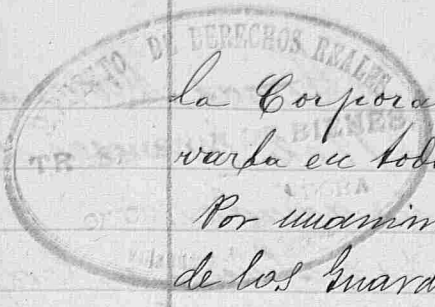 IMPUESTO DE DERECHOS REALES
TRANSMISIÓN BIENES
la Corpora
varla en tod
Por unanim
de los Guard